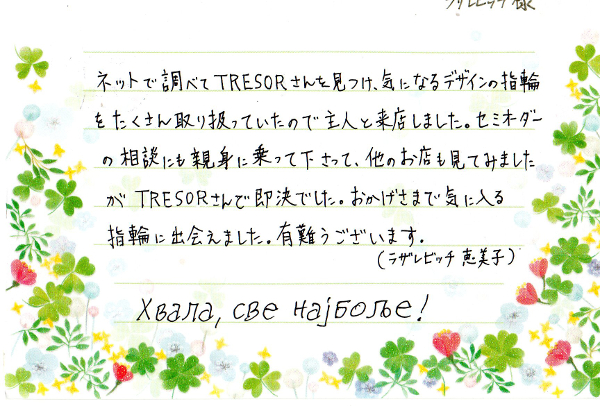 ラザレビッチ様
ネットで調べてTRESORさんを見つけ、気になるデザインの指輪
をたくさん取り扱っていたので主人と来店しました。セミオーダー
の相談にも親身に乗って下さって、他のお店も見てみました
がTRESORさんで即決でした。おかげさまで気に入る
指輪に出会えました。有難うございます。
(ラザレビッチ 恵美子)
Хвала, све најбоље!